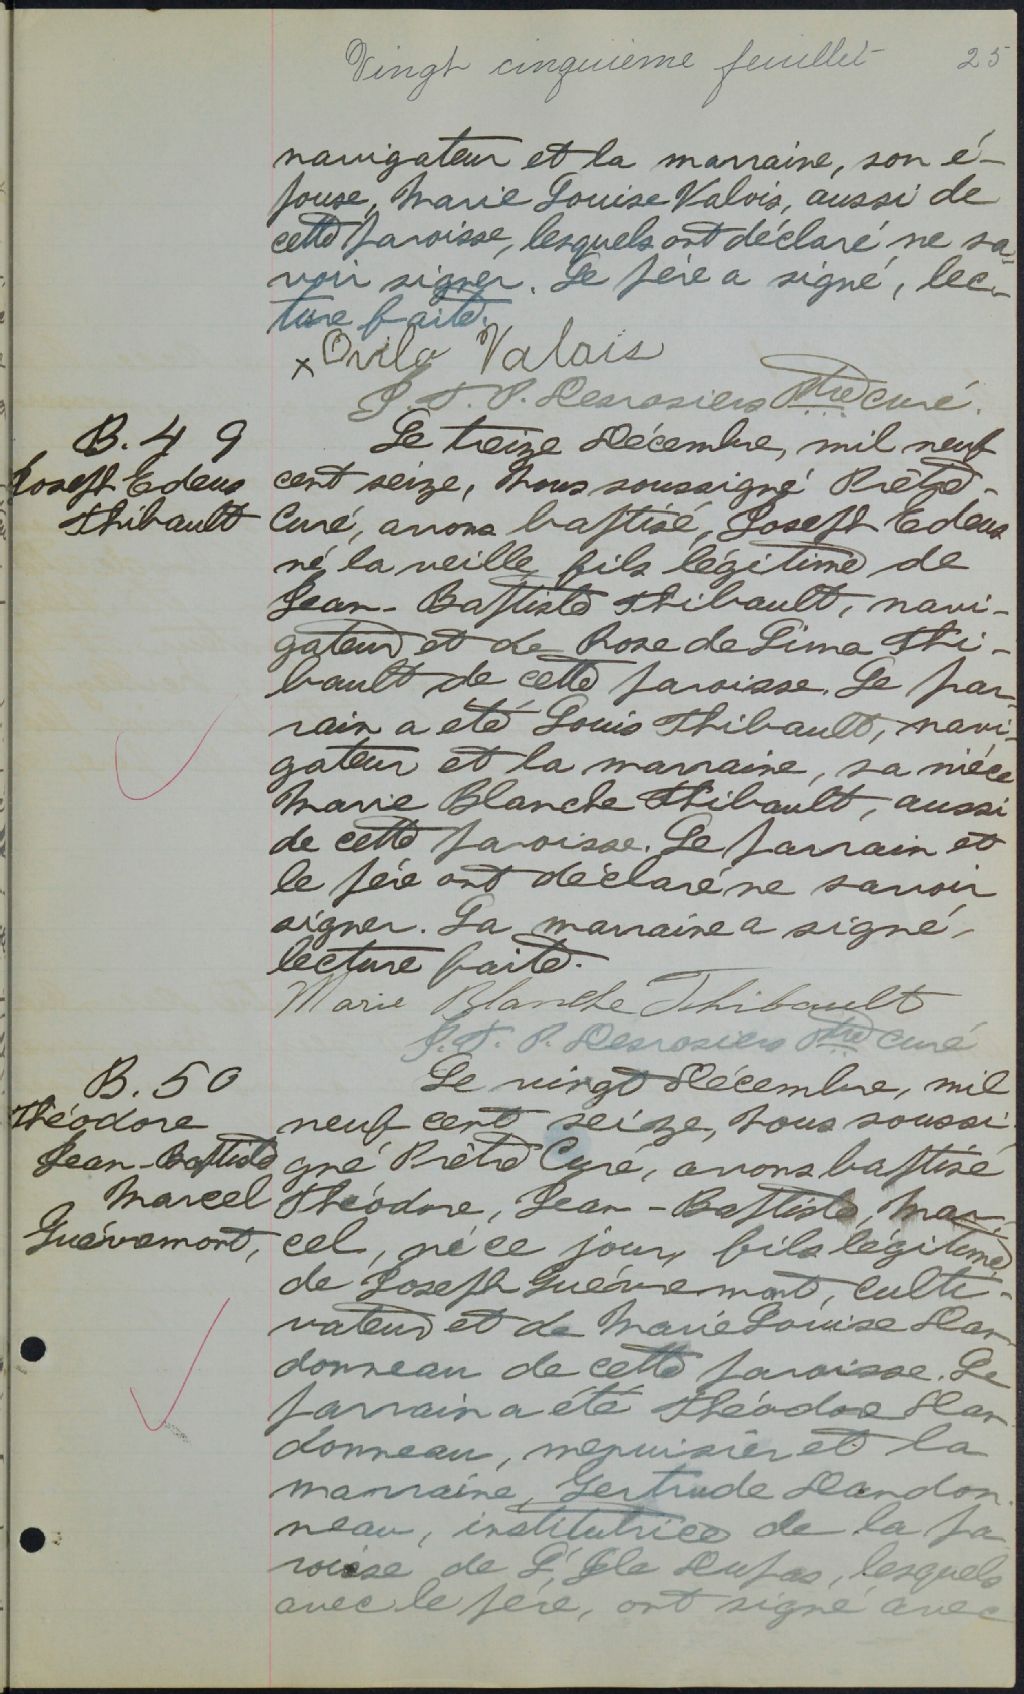 Vingt cinquième feuillet 25
navigateur et la marraine, son é-
pouse, Marie Louise Valois, aussi de
cette paroisse, lesquels ont déclaré ne sa-
voir signer. Le père a signé, lec-
ture faite.
x Ovila Valois
J. T. P. Desrosiers Ptre curé.
B. 49
Joseph Edeus
Thibault
Le treize Décembre, mil neuf
cent seize, Nous soussigné Prêtre-
Curé, avons baptisé, Joseph Edeus
né la veille, fils légitime de
Jean-Baptiste Thibault, navi-
gateur et de Rose de Lima Thi-
bault de cette paroisse. Le par-
rain a été Louis Thibault, navi-
gateur et la marraine, sa nièce
Marie Blanche Thibault, aussi
de cette paroisse. Le parrain et
le père ont déclaré ne savoir
signer. La marraine a signé,
lecture faite.
Marie Blanche Thibault
J. T. P. Desrosiers Ptre curé
B. 50
Théodore
Jean-Baptiste
Marcel
Guévremont,
Le vingt Décembre, mil
neuf cent seize, Nous soussi-
gné Prêtre Curé, avons baptisé
Théodore, Jean-Baptiste, Mar-
cel, né ce jour, fils légitime
de Joseph Guévremont, culti-
vateur et de Marie Louise Dan-
donneau de cette paroisse. Le
parrain a été Théodore Dan-
donneau, menuisier et la
marraine, Gertrude Dandon-
neau, institutrice de la pa-
roisse de L'Isle Dupas, lesquels
avec le père, ont signé avec